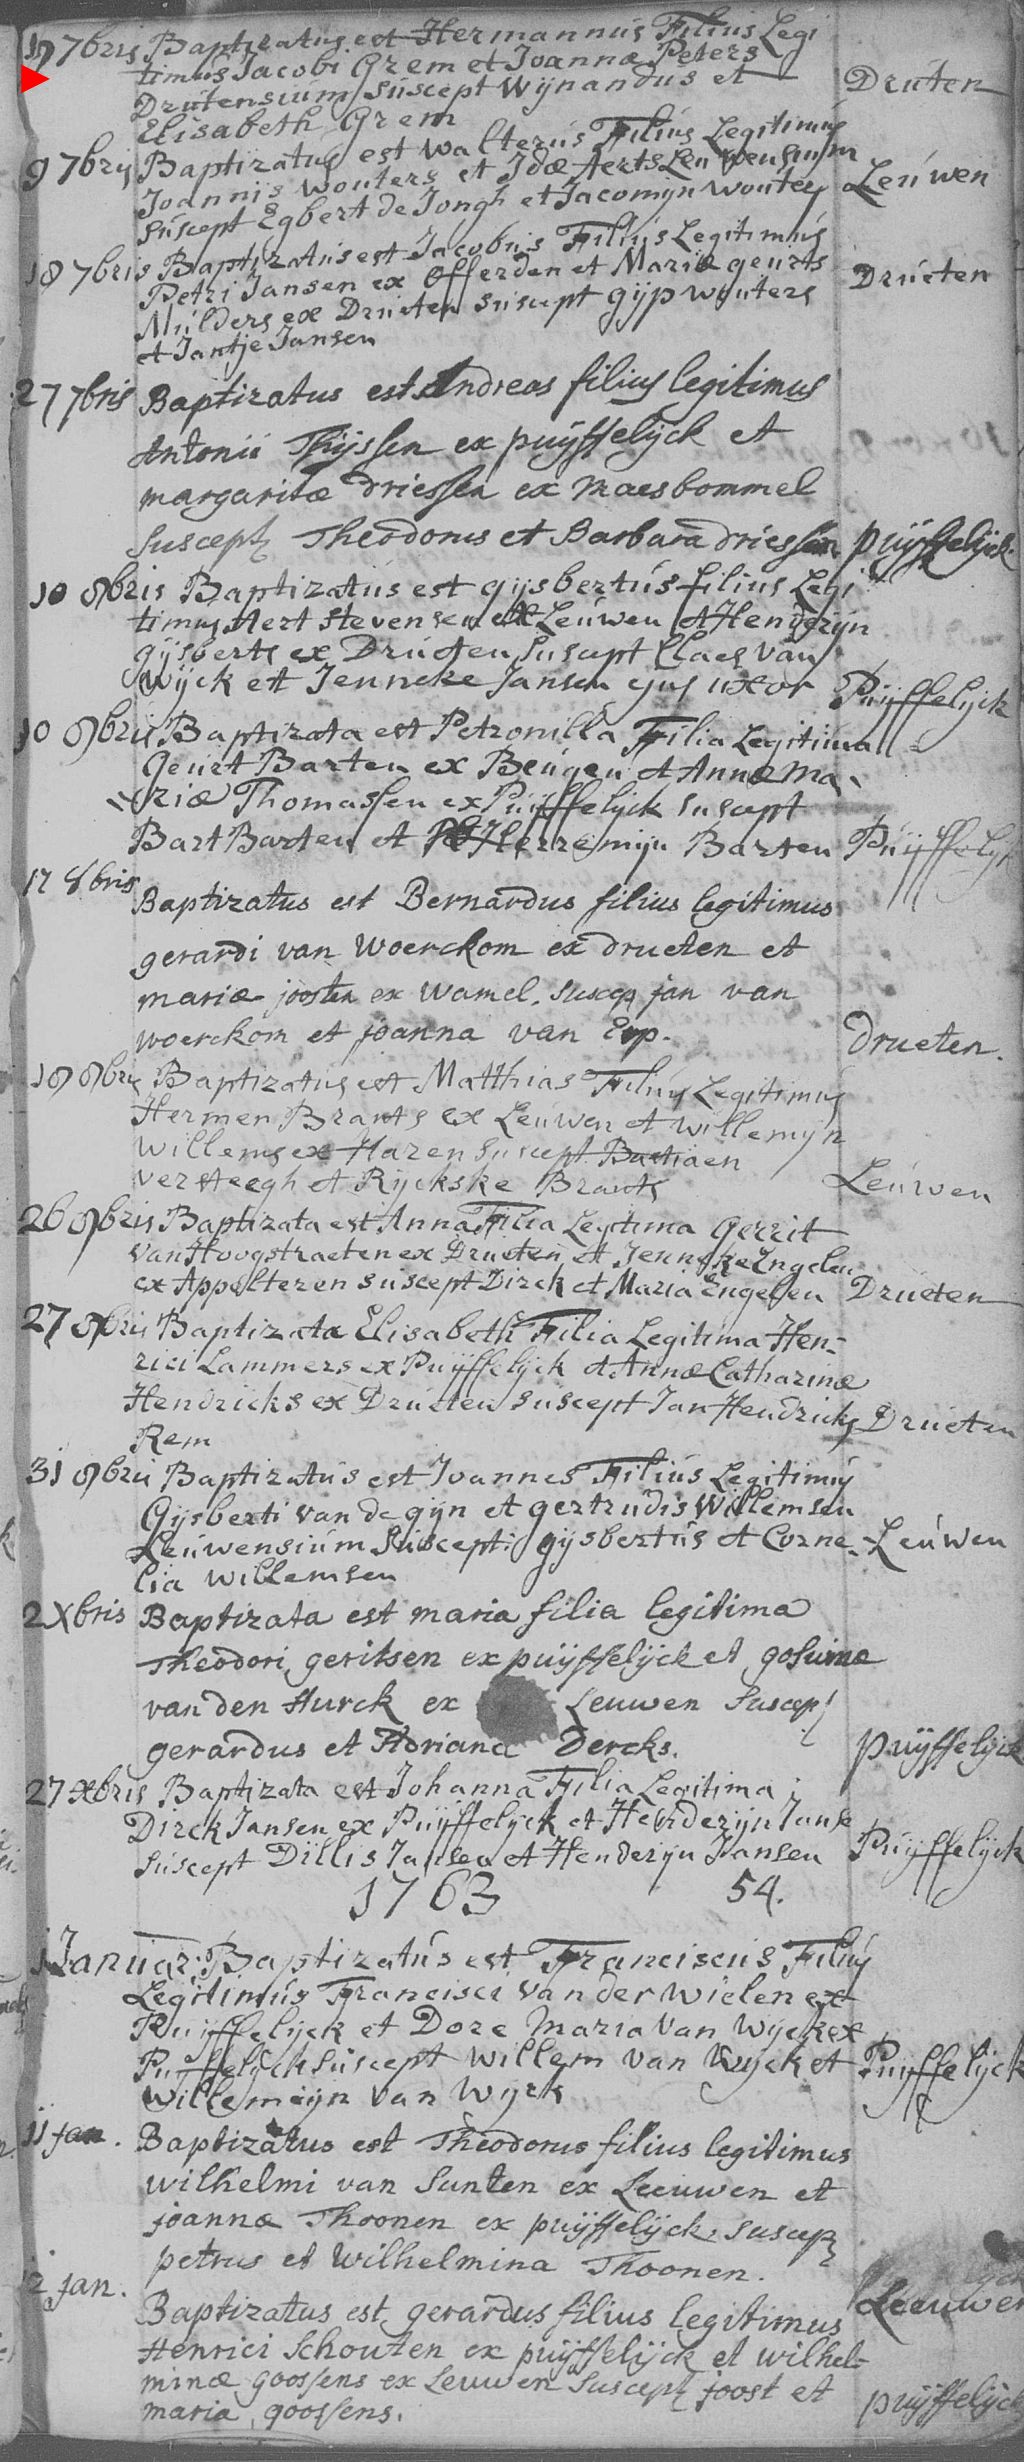 7bris Baptizatus est Hermannus Filius Legi
timus Jacobi Grem et Joannæ Peters
Drutensium suscept Wijnandus et Druten
Elisabeth Grem
9 7bris Baptizatus est Walterus Filius Legitimus
Joannis Wouters et Idæ Aerts Leuwensium Leuwen
suscept Egbert de Jongh et Jacomijn Wouters
18 7bris Baptizatus est Jacobus Filius Legitimus
Petri Jansen ex Offerden et Mariæ geurts Drueten
Mulders ex Drueten suscept gijp Wouters
et Jantje Jansen
27 7bris Baptizatus est Andreas filius legitimus
Antonii Thijssen ex puijffelijck et
margaritæ driessen ex maesbommel
suscept Theodorus et Barbara driessen puijffelijck
10 8bris Baptizatus est gijsbertus filius Legi
timus Aert stevensen ex Leuwen et Henderijn
gijsberts ex Drueten suscept Claes van
Wijck et Jenneke Jansen ejus uxor Puijffelijck
10 8bris Baptizata est Petronilla Filia Legitima
Geurt Barten ex Beugen et Annæ Ma
riæ Thomassen ex Puijffelijck suscept
Bart Barten et Herremijn Barten Puijffelijck
17 8bris
Baptizatus est Bernardus filius legitimus
gerardi van Woerckom ex drueten et
mariæ joosten ex Wamel. suscep jan van
woerckom et joanna van Erp. drueten.
18 8bris Baptizatus est Matthias Filius Legitimus
Hermen Brants ex Leuwen et willemijn
Willems ex Haren suscept Bastiaen
versteegh et Rijckske Brants Leuwen
26 8bris Baptizata est Anna Filia Legitima Gerrit
Van Hoogstraeten ex Drueten et Jenneke Engelen
ex Appelteren suscept Dirck et Maria Engelen Drueten
27 8bris Baptizata Elisabeth Filia Legitima Hen-
rici Lammers ex Puijffelijck et Annæ Catharinæ
Hendricks ex Drueten suscept Jan Hendricks Drueten
Rem
31 8bris Baptizatus est Joannes Filius Legitimus
Gijsberti van de gijn et gertrudis Willemsen
Leuwensium Suscepti gijsbertus et Corne- Leuwen
lia Willemsen
2 Xbris Baptizata est maria filia legitima
Theodori geritsen ex puijffelijck et gosuinæ
van den Hurck ex Leuwen suscept
gerardus et Adriana Dercks. puijffelijck
27 xbris Baptizata est Johanna Filia Legitima
Dirck Jansen ex Puijffelijck et Henderijn Janse
suscept Dillis Jansen et Henderijn Jansen Puijffelijck
1763 54.
1 Januar: Baptizatus est Franciscus Filius
Legitimus Francisci Van der Wielen ex
Puijffelijck et Dore Maria Van Wijck ex
Puffelijck suscept Willem van Wijck et Puijffelijck
Willemeijn van Wijck
11 jan. Baptizatus est Theodorus filius legitimus
wilhelmi van Santen ex Leeuwen et
joannæ Thoonen ex puijffelijck, suscept
petrus et wilhelmina Thoonen.
jan. Leeuwen
Baptizatus est gerardus filius legitimus
Henrici Schouten ex puijffelijck et wilhel-
minæ goossens ex Leuwen suscept joost et
maria goossens. puijffelijck